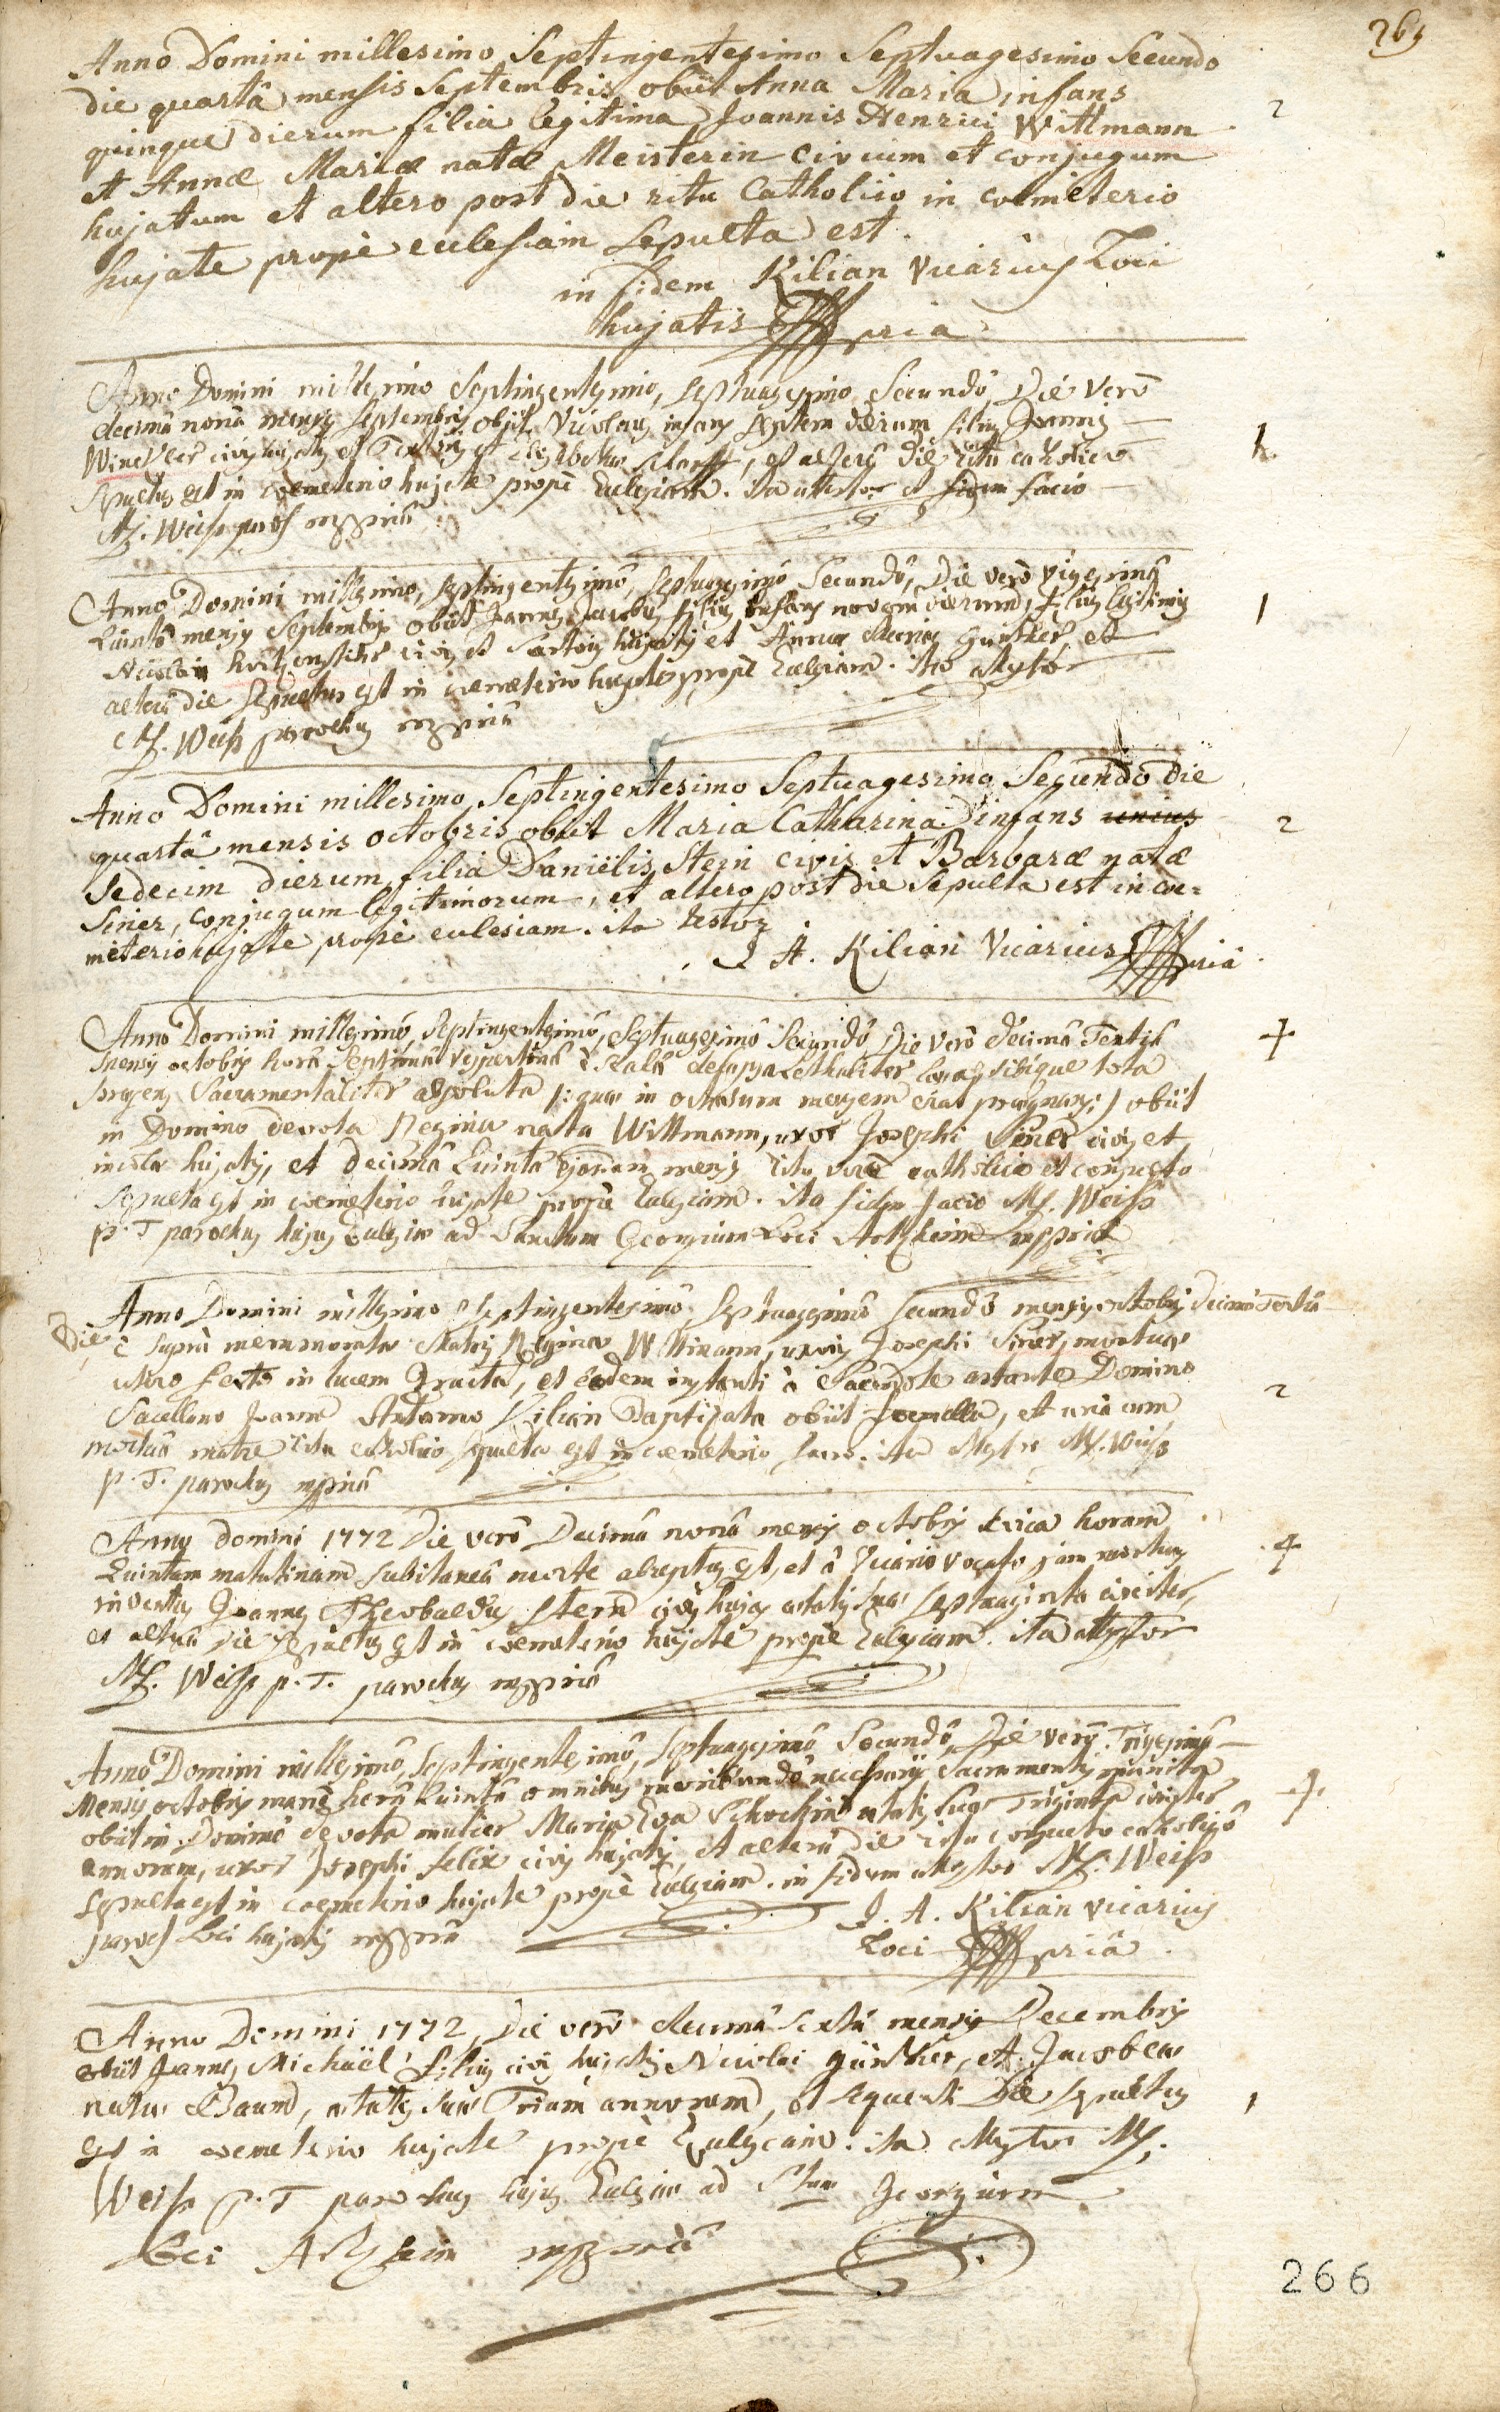 265
Anno Domini millesimo Septingentesimo Septuagesimo Secundo
die quartâ mensis Septembris obiit Anna Maria infans
2
quinque dierum filia legitima Joannis Henrici Wittmann
et Annæ Mariæ natæ Meisterin civium et conjugum
hujatum et altero post die ritu Catholico in coemeterio
hujate propè eclesiam Sepulta est.
in fidem Kilian Vicarius Loci
hujatis pria
Anno Domini millesimo Septingentesimo, Septuagesimo Secundô, Die Verô
decimâ nonâ mensis Septembris objit Nicolaus infans septem dierum filius Joannis
civis hujatis et et Elisabethæ, et alterâ die ritu catholico
1
Sepultus est in coemeterio hujate propè Ecclesiam. ita attestor et fidem facio
M. Weiss paroch mppriâ
Anno Domini millesimo, septingentesimô, septuagesimô Secundô, Die verô vigesimâ
Quintâ mensis Septembris obiit Joannes Jacobus filius infans novem dierum, filius legitimus
1
Nicolai civis et Sartoris hujatis et Annæ Mariæ Günther, et
alterâ die sepultus est in coemeterio hujate propè Ecclesiam. ita attestor
M. Weiss parochus mppriâ
Anno Domini millesimo Septingentesimo Septuagesimo Secundo die
quartâ mensis octobris obiit Maria Catharina infans unius
2
Sedecim dierum filia Daniëlis Stein civis et Barbaræ natæ
Siner, conjugum legitimorum, et altero post die Sepulta est in coe=
meterio hujate propè eclesiam. ita testor
J. A. Kilian Vicarius priâ
Anno Domini millesimô, septingentesimô, Septuagesimô Secundô, Die verô decimâ Tertiâ
+
mensis octobris horâ Septimâ Vespertinâ è scalâ delapsa Lethaliter læsa, sibique tota
præsens Sacramentaliter absoluta /: quæ in octavum mensem erat prægnans :/ obiit
in Domino devota Regina nata Wittmann, uxor Josephi Siner civis et
incolæ hujatis, et decimâ Quintâ ejusdem mensis ritu verè catholico et consueto
Sepulta est in coemeterio hujate propè Ecclesiam. ita fidem facio M. Weiss
p. T parochus hujus Ecclesiæ ad Sanctum Georgium Loci mppriâ
Anno Domini millesimo Septingentesimô Septuagesimô secundô mensis octobris decimâ Tertiâ
Die è suprà memmorata Matris Reginæ Wittmann, uxoris Josephi Siner, mortuæ
utero secto in lucem tracta, et eodem instanti à Sacerdote astante Domino
2
Sacellano Joanne Antonio Kilian baptizata obiit femella, et unà cum
mortuâ matre ritu catholico sepulta est in coemeterio sacro. ita attestor M. Weiss
p. T. parochus mppriâ
Anno domini 1772 Die verô Decimâ nonâ mensis octobris circa horam
+
Quintam matutinam subitaneâ morte abreptus est, et à Vicario vocato jam mortuus
inventus Joannes Theobaldus Stern civis hujas ætatis suæ septuaginta circiter,
et alterâ die sepultus est in coemeterio hujate propè Ecclesiam. ita attestor
M. Weiss p. T. parochus mppriâ
Anno Domini millesimô, septingentesimô, septuagesimô Secundô, Die verò Trigesimâ
Mensis octobris manè horâ Quintâ omnibus moribundô necessariis Sacramentis munita
+
obiit in Domino devota mulier Maria Eva ætatis suæ Triginta circiter
annorum, uxor Josephi Felix civis hujatis, et alterâ Die ritu consueto catholicô
sepulta est in coemeterio hujate propè Ecclesiam. in fidem attestor M. Weiss
paroch Loci hujatis mppriâ
J. A. Kilian vicarius
Loci priâ
Anno Domini 1772, Die verô decimâ Sextâ mensis Decembris
obiit Joannes Michaël filius civis hujatis Nicolai Günther, et Jacobeæ
natæ Baum, ætatis suæ Trium annorum, et sequenti Die sepultus
1
est in coemeterio hujate propè Ecclesiam. ita attestor M.
Weiss p. T parochus hujus Ecclesiæ ad Stum Georgium
Loci mppriâ
266